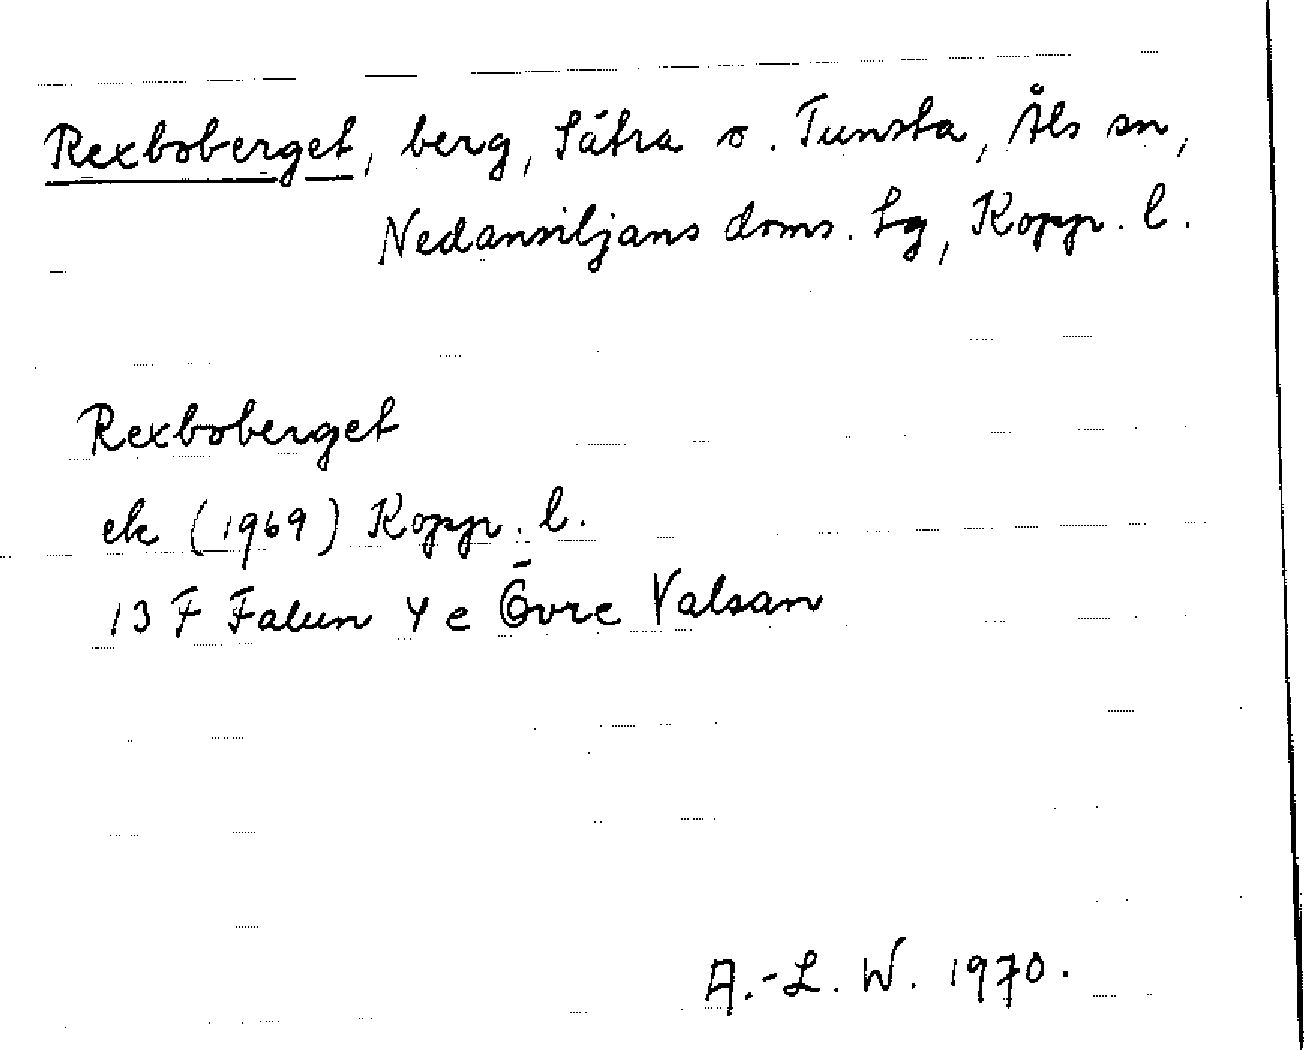 Rexboberget, berg, Sätra o. Tunsta, Åls sn,
Nedansiljans doms. lg, Kopp. l.
Rexboberget
ek (1969) Kopp. l.
13 F Falun 4 e Övre Valsan
A.-L. W. 1970.